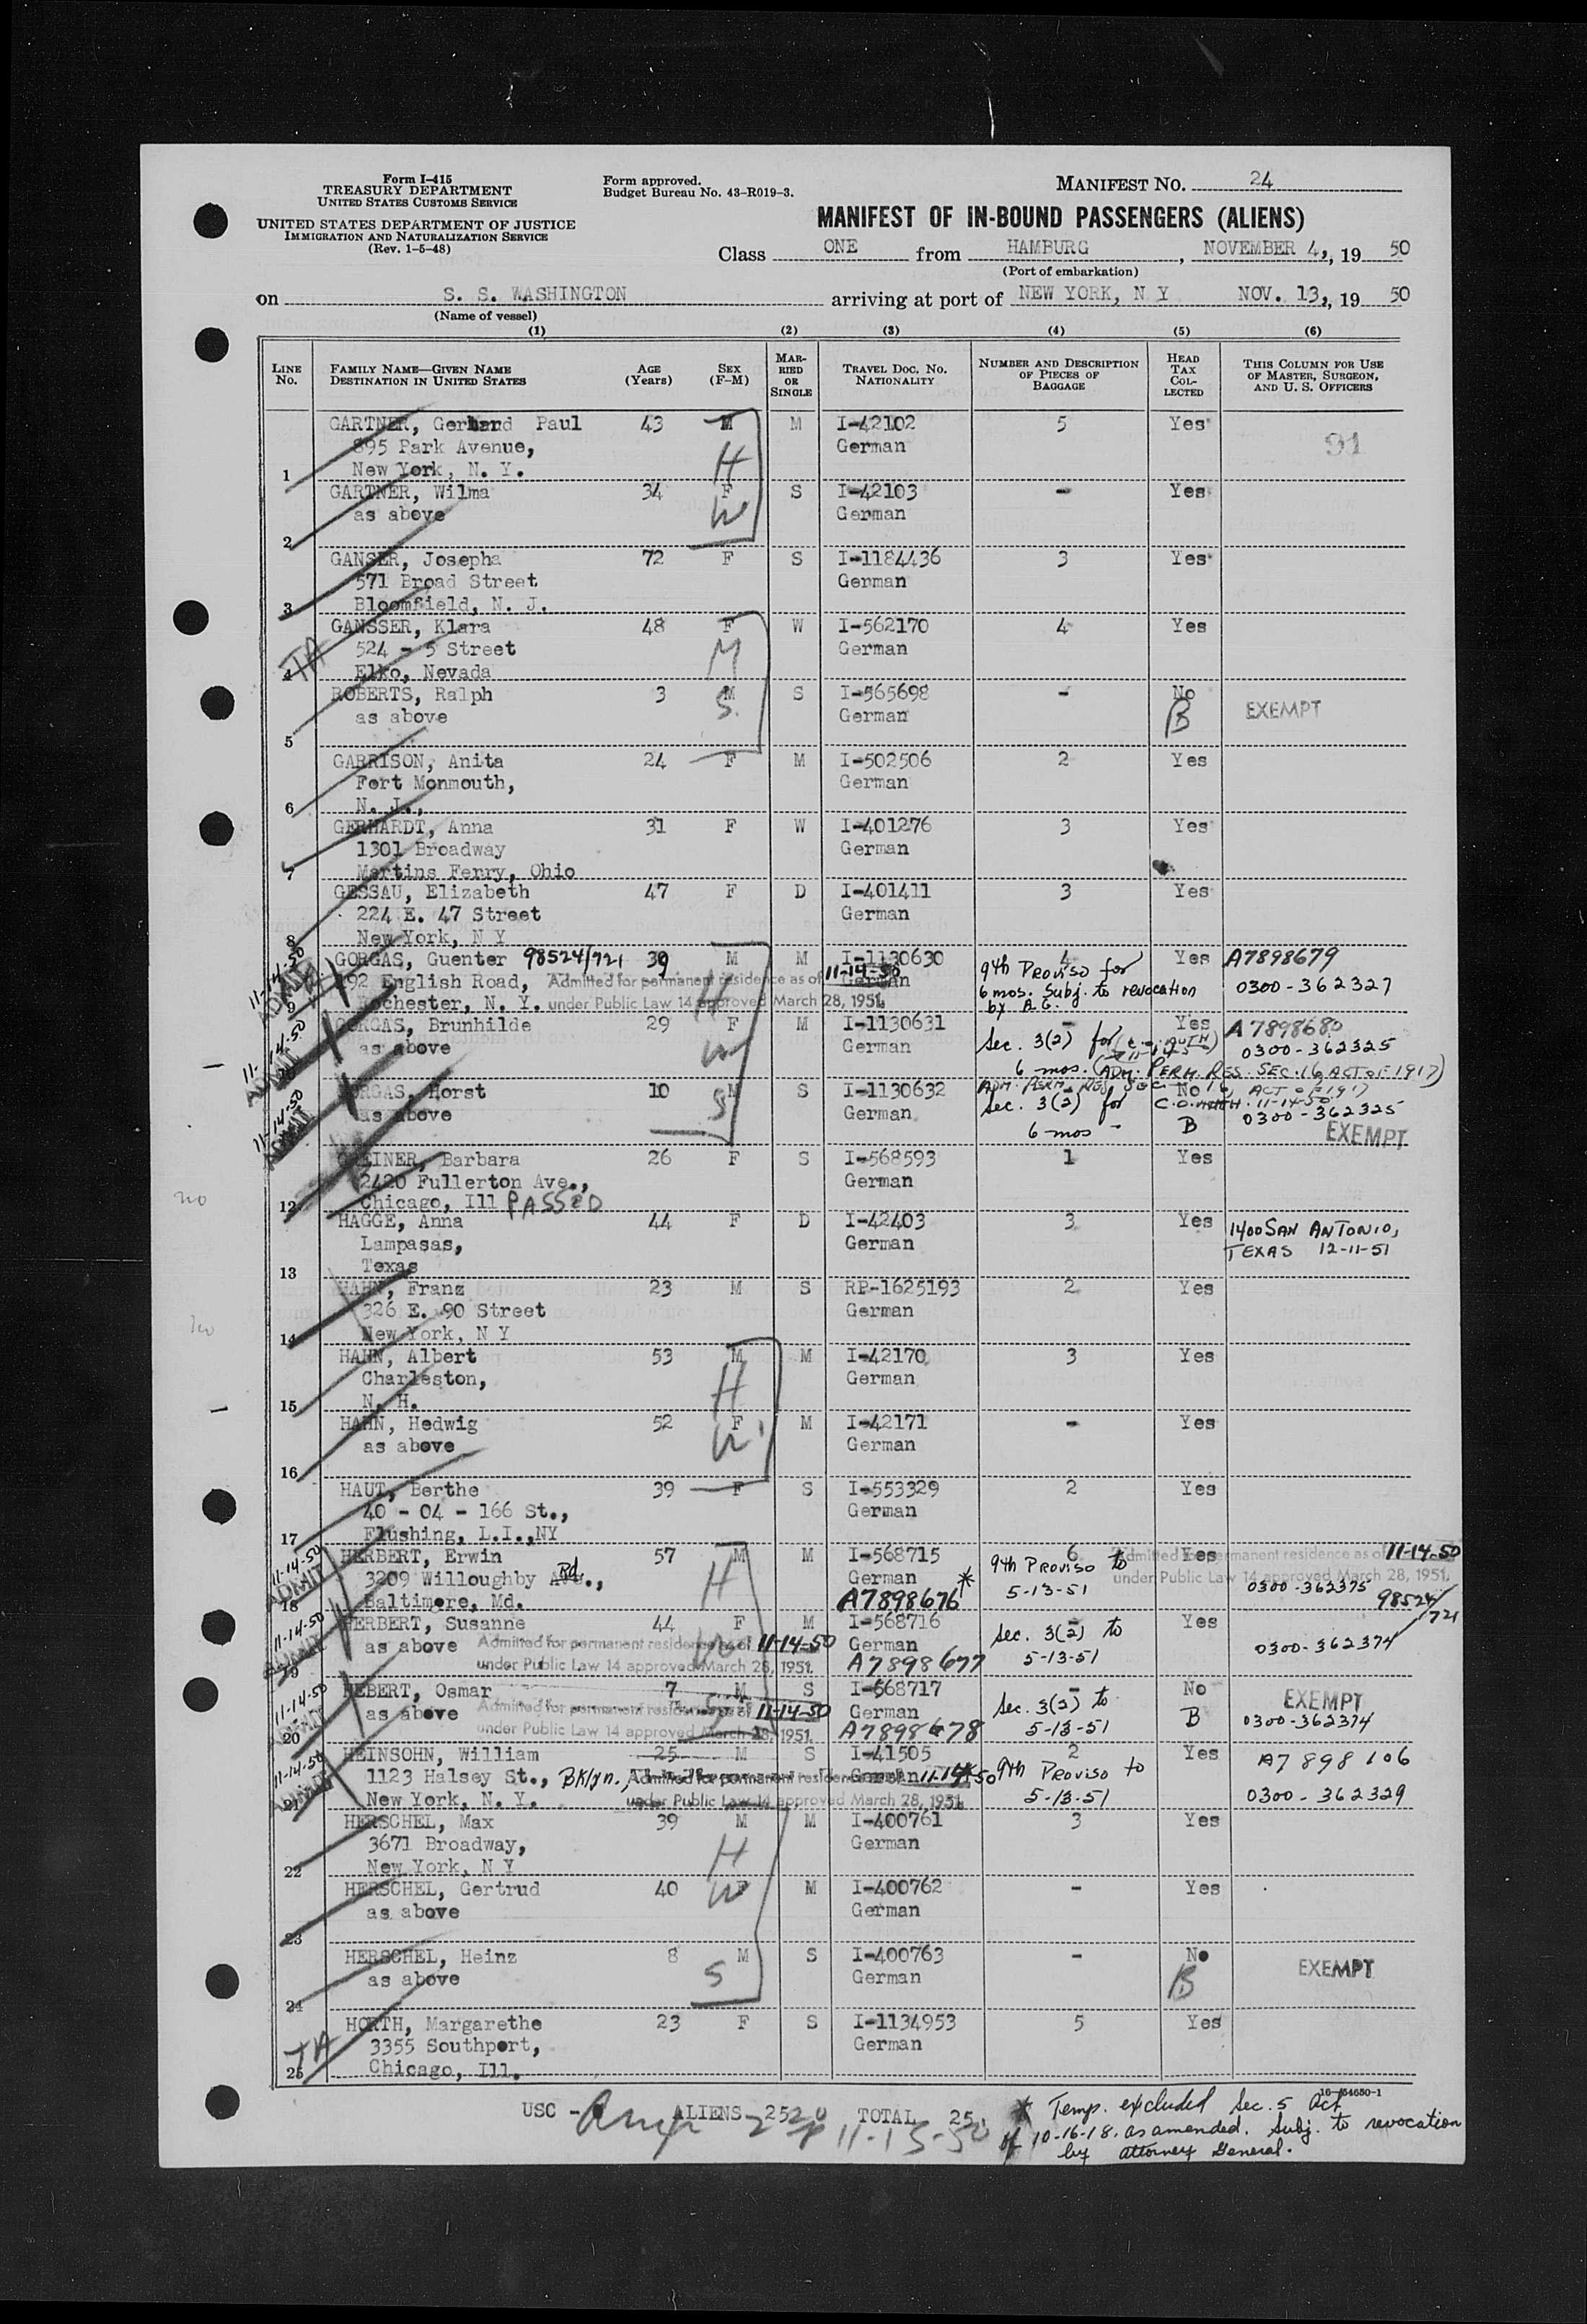 Form I-415
TREASURY DEPARTMENT
UNITED STATES CUSTOMS SERVICE
UNITED STATES DEPARTMENT OF JUSTICE
IMMIGRATION AND NATURALIZATION SERVICE
(Rev. 1-5-48)
Form approved.
Budget Bureau No. 43-R019-3.
MANIFEST No. 24
MANIFEST OF IN-BOUND PASSENGERS (ALIENS)
Class ONE from HAMBURG, NOVEMBER 4,, 19 50
(Port of embarkation)
on S. S. WASHINGTON arriving at port of NEW YORK, N Y NOV. 13,, 19 50
(Name of vessel)
(1) (2) (3) (4) (5) (6)
LINE No. FAMILY NAME—GIVEN NAME DESTINATION IN UNITED STATES AGE (Years) SEX (F-M) MARRIED OR SINGLE TRAVEL DOC. NO. NATIONALITY NUMBER AND DESCRIPTION OF PIECES OF BAGGAGE HEAD TAX COLLECTED THIS COLUMN FOR USE OF MASTER, SURGEON, AND U. S. OFFICERS
GARTNER, Gerhard Paul 43 M M I-42102 5 Yes
895 Park Avenue, German 91
1 New York, N. Y. H
GARTNER, Wilma 34 F S I-42103 - Yes
as above W German
2
GANSER, Josepha 72 F S I-1184436 3 Yes
571 Broad Street German
3 Bloomfield, N. J.
GANSSER, Klara 48 F W I-562170 4 Yes
524 - 5 Street M German
4 TA Elko, Nevada
ROBERTS, Ralph 3 M S I-565698 - No
as above S. German B EXEMPT
5
GARRISON, Anita 24 F M I-502506 2 Yes
Fort Monmouth, German
6 N. J.,
GERHARDT, Anna 31 F W I-401276 3 Yes
1301 Broadway German
7 Martins Ferry, Ohio
GESSAU, Elizabeth 47 F D I-401411 3 Yes
224 E. 47 Street German
8 New York, N Y
11-14-50 ADMIT GORGAS, Guenter 98524/721 39 M M I-1130630 4 Yes A7898679
92 English Road, Admitted for permanent residence as of 11-14-50 German 9th Proviso for 0300-362327
9 Rochester, N. Y. under Public Law 14 approved March 28, 1951. H 6 mos. Subj. to revocation
by A.G.
11-14-50 ADMIT GORGAS, Brunhilde 29 F M I-1130631 - Yes A7898680
as above W German Sec. 3(2) for 0300-362325
6 mos. (ADM. PERM. RES. SEC. 16 ACT OF 1917)
11-14-50 ADMIT GORGAS, Horst 10 M S I-1130632 No ADM. PERM. RES. SEC. 16, ACT OF 1917
as above S German Sec. 3(2) for 11-14-50 0300-362325
6 mos - B EXEMPT
GREINER, Barbara 26 F S I-568593 1 Yes
2420 Fullerton Ave., German
12 Chicago, Ill PASSED
HAGGE, Anna 44 F D I-42403 3 Yes 1400 SAN ANTONIO,
Lampasas, German TEXAS 12-11-51
13 Texas
HAHN, Franz 23 M S RP-1625193 2 Yes
326 E. 90 Street German
14 New York, N Y
HAHN, Albert 53 M M I-42170 3 Yes
Charleston, H German
15 N. H.
HAHN, Hedwig 52 F M I-42171 - Yes
as above W German
16
HAUT, Berthe 39 F S I-553329 2 Yes
40 - 04 - 166 St., German
17 Flushing, L.I.,NY
11-14-50 ADMIT HERBERT, Erwin 57 M M I-568715 6 Yes Admitted for permanent residence as of 11-14-50
3209 Willoughby Ave., Rd H German * 9th Proviso to under Public Law 14 approved March 28, 1951.
18 Baltimore, Md. A7898676 5-13-51 0300-362375 98524/721
11-14-50 ADMIT HERBERT, Susanne 44 F M I-568716 - Yes
as above Admitted for permanent residence as of 11-14-50 German Sec. 3(2) to 0300-362374
19 under Public Law 14 approved March 28, 1951. W A7898677 5-13-51
11-14-50 ADMIT HEBERT, Osmar 7 M S I-568717 - No EXEMPT
as above Admitted for permanent residence as of 11-14-50 German Sec. 3(2) to B 0300-362374
20 under Public Law 14 approved March 28, 1951. A7898678 5-13-51
11-14-50 ADMIT HEINSOHN, William 25 M S I-41505 2 Yes A7 898 106
1123 Halsey St., Bklyn. Admitted for permanent residence as of 11-14-50 German 9th Proviso to
21 New York, N. Y. under Public Law 14 approved March 28, 1951. 5-13-51 0300-362329
HERSCHEL, Max 39 M M I-400761 3 Yes
3671 Broadway, H German
22 New York, N Y
HERSCHEL, Gertrud 40 F M I-400762 - Yes
as above W German
23
HERSCHEL, Heinz 8 M S I-400763 - No
as above S German B EXEMPT
24
HORTH, Margarethe 23 F S I-1134953 5 Yes
3355 Southport, German
25 TA Chicago, Ill.
16-54650-1
USC - ALIENS 25 TOTAL 25
11-13-50
* Temp. excluded Sec. 5 Act
of 10-16-18. as amended. Subj. to revocation
by attorney General.